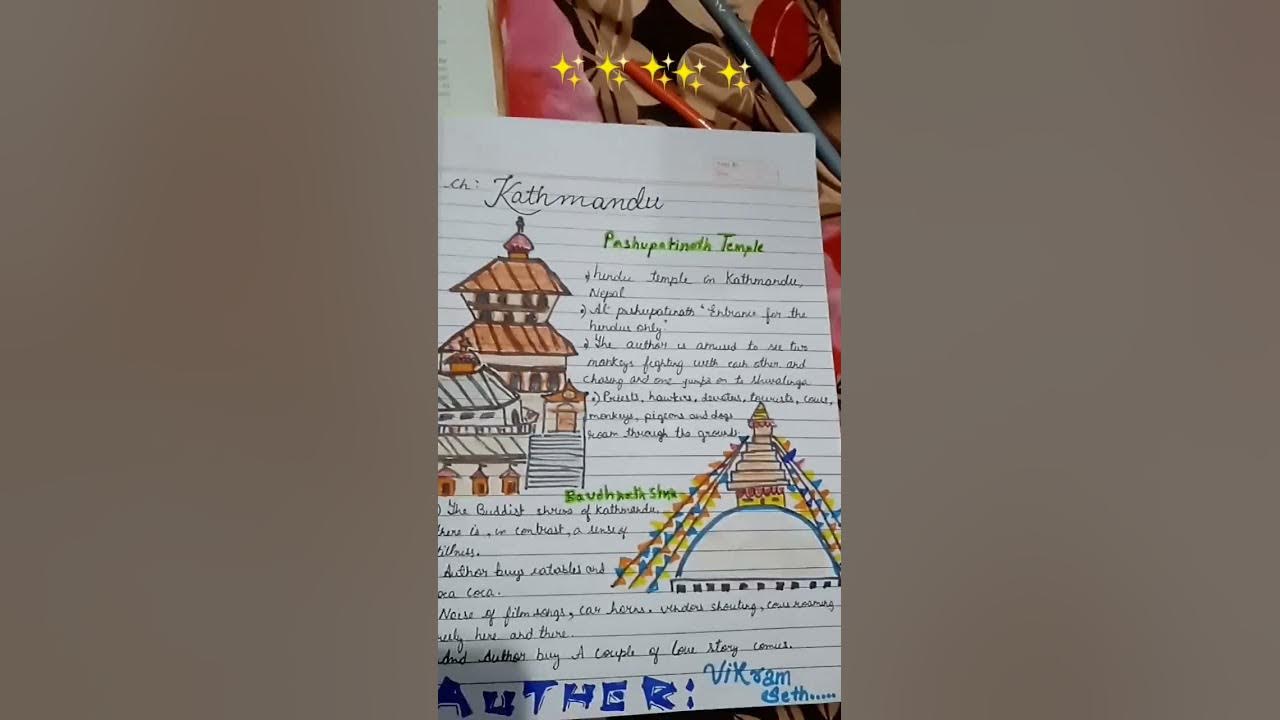 ch: Kathmandu
Pashupatinath Temple
hindu temple in Kathmandu,
Nepal
At pashupatinath "Entrance for the
hindus only"
The author is amused to see two
monkeys fighting with each other and
chasing and one jumps on to shivalinga
Priests, hawkers, devotes, tourists, cows,
monkeys, pigeons and dogs
roam through the grounds
Baudhnath
The Buddist shrine of Kathmandu,
there is, in contrast, a sense of
tillness.
Author buys eatables and
oca coca.
Noise of film songs, car horns, vendors shouting, cows roaming
reely here and there.
And Author buy A couple of love story comics.
AUTHER:
Vikram
Seth.....